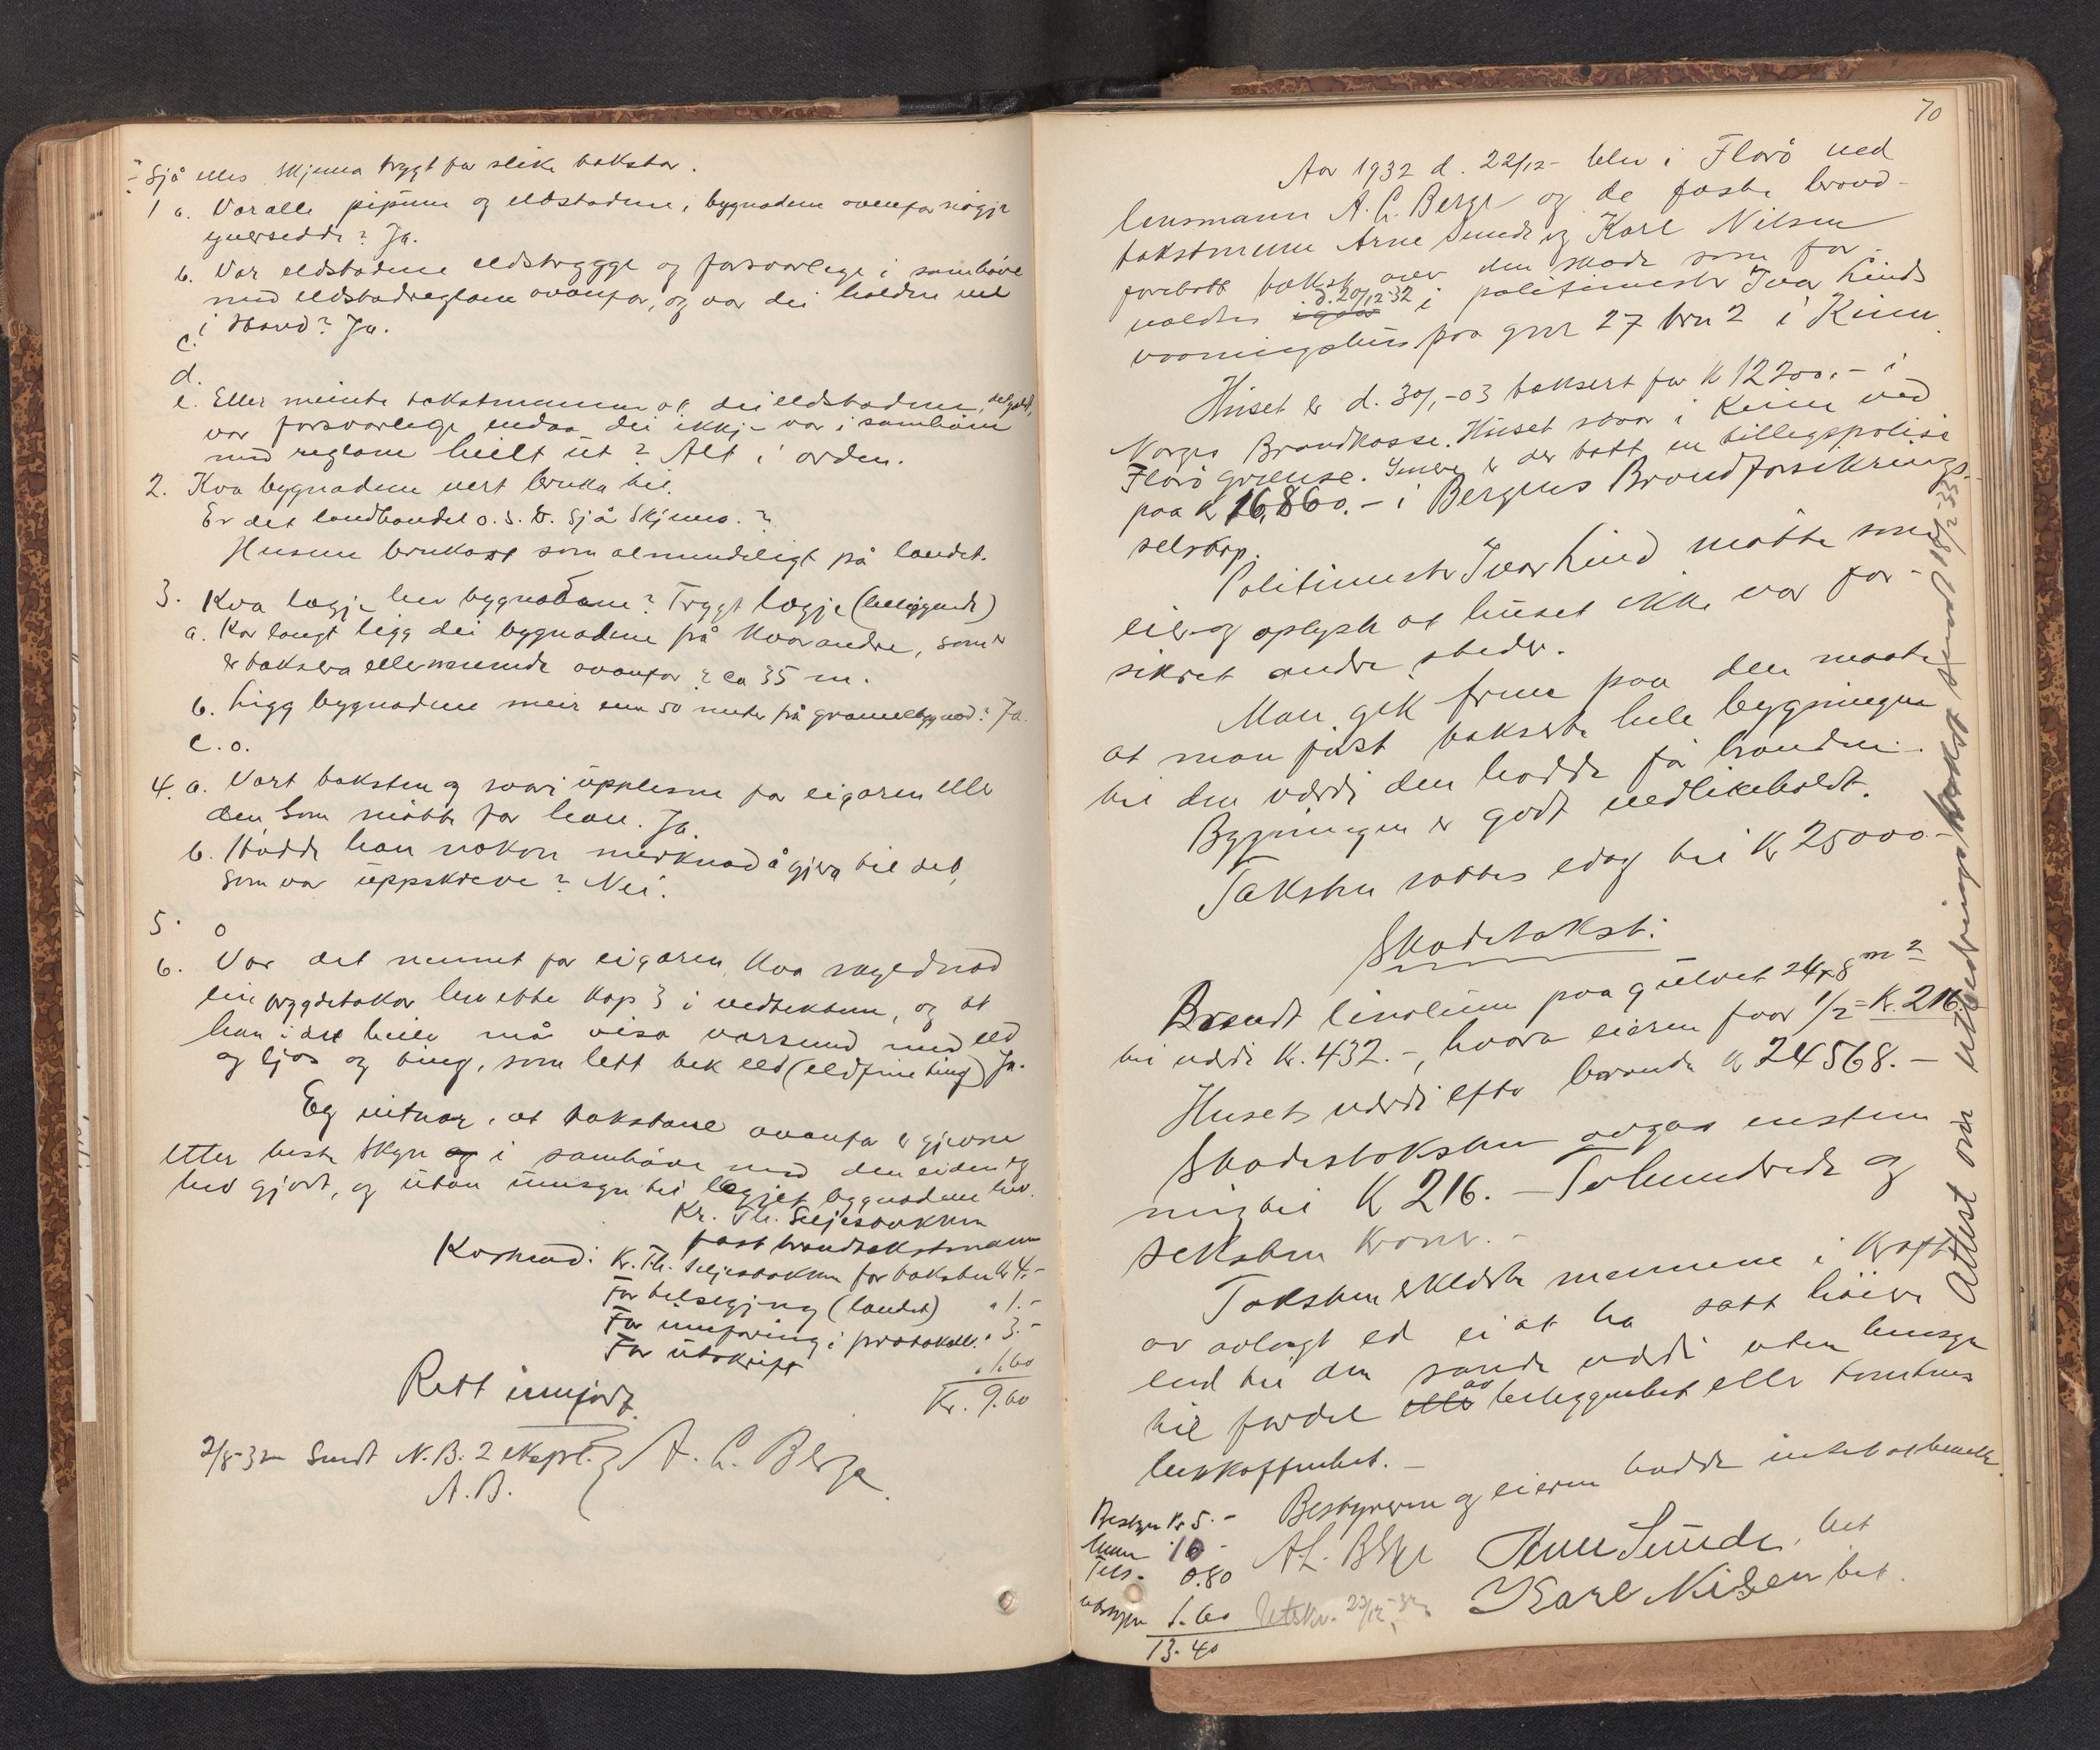 ÷ Sjå elles skjema trygt for slike takstar.
1 a. Var alle pipune og eldstadene, bygnadene ovanfor nøgje
synersedde? Ja.
b. Var eldstadene eldstrygge og forsvarlege i samhøve
med eldstadreglane ovanfor, og var dei haldne vel
i stand? Ja.
c.
d.
e. Eller meinte takstmannen at dei eldstadene,
var forsvarlege endaa dei ikkje var i samhøve
med reglane heilt ut? Alt i orden.
2. Kva bygnadene vert bruka til.
Er det landhandel o.s.v. Sjå Skjema.?
Husene brukast som almindeligt på landet.
3. Kva lægje hev bygnadene? Trygt lægje (beliggende)
a. Kor langt ligg dei bygnadene frå kvarandre, som
er taksera ellernemnde ovanfor? ca 35 m.
b. Ligg bygnadene meir enn 50 meter frå grannebygnad? Ja.
c. o.
4. a. Vart taksten og svari upplesne for eigaren eller
den som møtte for han. Ja.
b. Hadde han nokon merknad å gjera til det,
som var uppskreve? Nei.
5. o
6. Var det nemnt for eigaren, kva skyldnad
ein trygdetakar hev etter kap 3 i vedtektene, og at
han i det heile må visa varsemd med eld
og ljos og ting, som lett tek eld (eldfine ting) Ja.
Eg vitnar, at takstane ovanfor er gjevne
etter beste skyn og i samhøve med den eiden eg
hev gjort, og utan umsyn til lægjet bygnadene hev.
Kr. Th. Seljestokken
fast brandtakstmann
Kostnad: Kr. Th. Seljestokken for taksten kr 4.-
For tilsegjing (landet) " 1.-
For innføring i protokoll. " 3.-
For utskrift " 1.60
Kr. 9.60
Rett innført.
2/8-32 Sendt N.B. 2 ekspl. A. L. Berge
A.B.
70
Aar 1932 d. 22/12- blev i Florö ved
lensmann A. L. Berge og de faste brand-
takstmenn Arne Sunde og Karl Nilsen
foretatt takst over den skade som for-
voldtes igaar d. 20/12-32 i politimester Ivar Linds
vaaningshus paa gnr 27 brn 2 i Kinn.
Huset er d. 30/1-03 taksert for k 12200.- i
Norges Brandkasse. Huset staar i Kinn ved
Florö grænse. Senere er der tatt en tillegspolise
paa k 16,860.- i Bergens Brandforsikrings-
selskap.
Politimester Ivar Lind møtte som
eier og oplyste at huset ikke var for-
sikret andre steder.
Man gik frem paa den maate
at man først takserte hele bygningen
til den værdi den hadde før branden.
Bygningen er godt vedlikeholdt.
Taksten sattes idag til K 25000.-
Skadetakst:
Brendt linoleum paa gulvet 24x8 m2
til verdi kr. 432.-, hvorav eieren faar 1/2 = Kr. 216.
Husets værdi efter branden k 24568.-
Skadestaksten avgaves enstem
mig til K 216. - Tohundrede og
seksten kroner.-
Taksten erklærte mennene i kraft
av avlagt ed ei at ha satt høiere
end til den sande værdi uten hensyn
til fordel eller av beliggenhet eller tomtens
beskaffenhet. -
Bestyreren og eieren hadde intet at bemerke.
Bestyr Kr 5. -
Menn 10 -
Tils. 0.80
utskr 1.60
13.40
A.L. Berge Arne Sunde. bet
Karl Nilsen bet.
Utskr. 22/12-32
Attest om utbedringstakst sendt 18/2 33